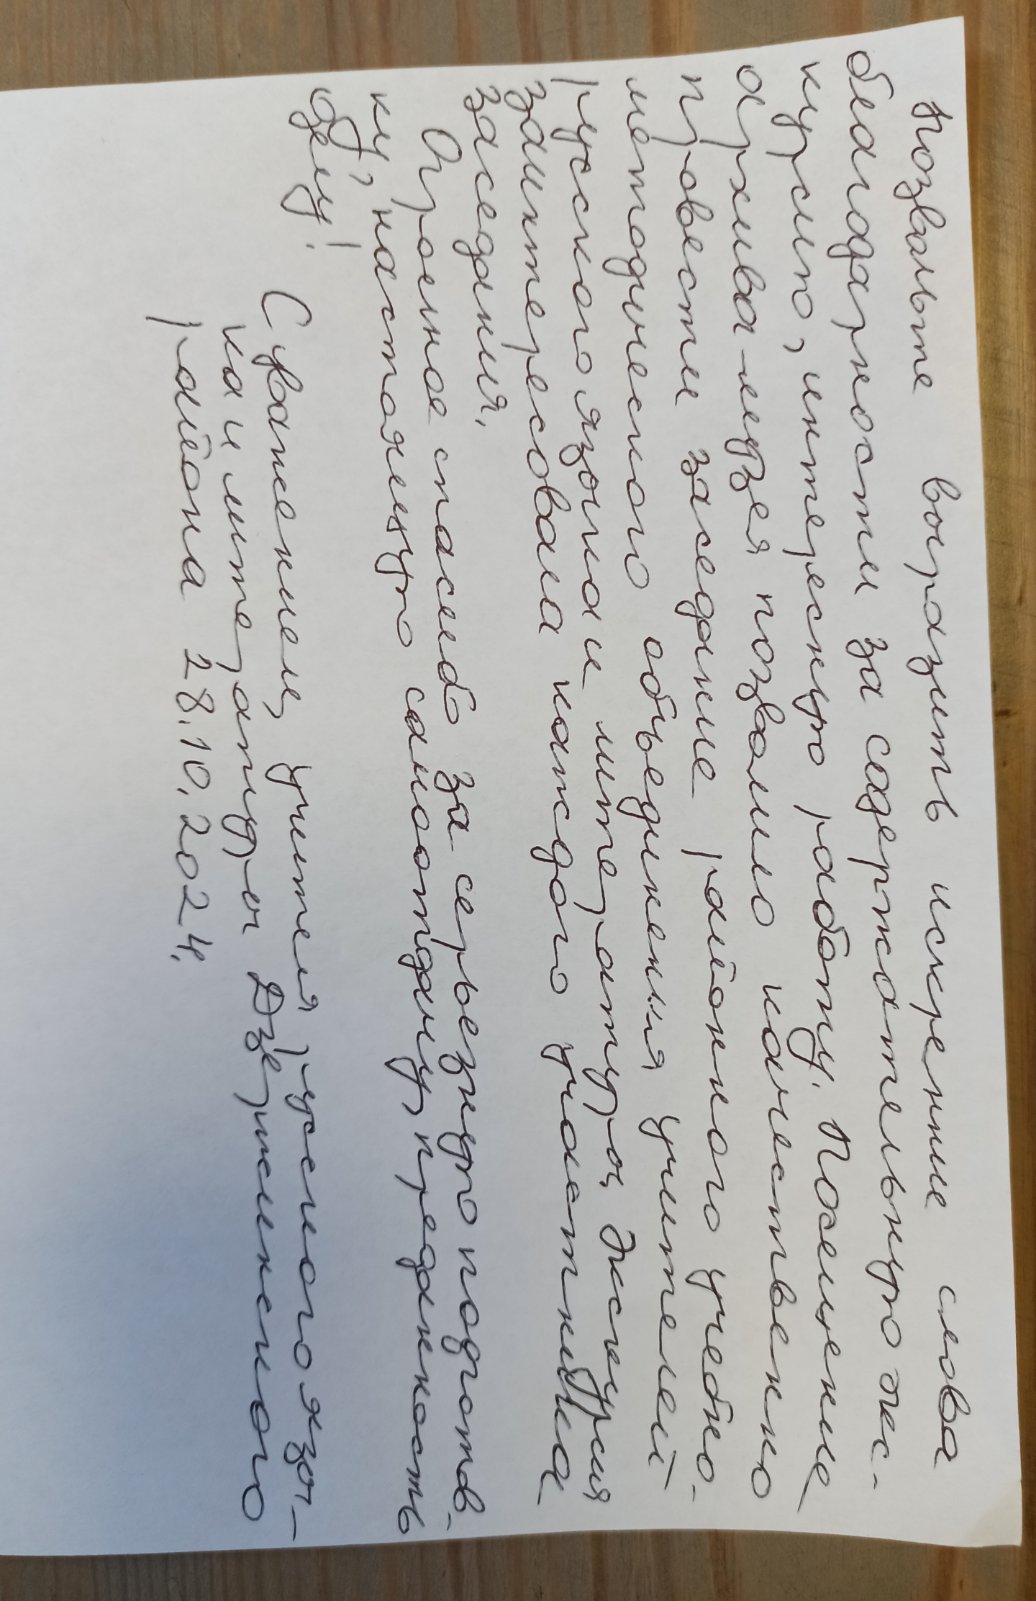 Позвольте выразить искренние слова
благодарности за содержательную экс-
курсию, интересную работу. Посещение
архива-музея позволило качественно
провести заседание районного учебно-
методического объединения учителей
русского языка и литературы. Экскурсия
заинтересовала каждого участника
заседания.
Огромное спасибо за серьезную подготов-
ку, настоящую самоотдачу, преданность
делу!
С уважением, учителя русского язы-
ка и литературы Дзержинского
района 28.10.2024.